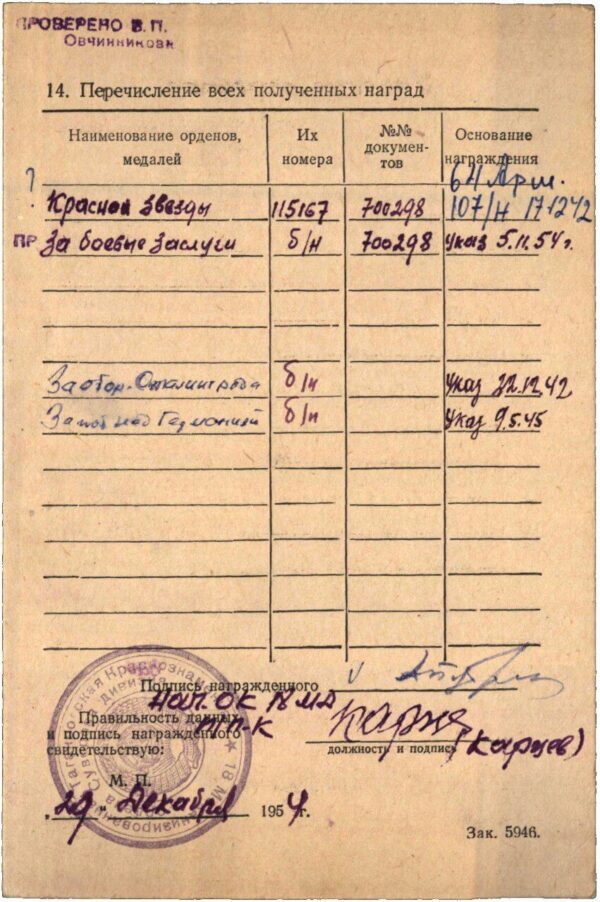 ПРОВЕРЕНО В.П.
Овчинникова
14. Перечисление всех полученных наград
Наименование орденов, медалей
Их номера
№№ документов
Основание награждения
64 Арм.
? Красной Звезды 115167 700298 107/н 17.12.42
ПР За боевые заслуги б/н 700298 Указ 5.11.54 г.
За обор. Сталинграда б/н Указ 22.12.42
За поб над Германией б/н Указ 9.5.45
Подпись награжденного
Нач. ОК 18 МД
Правильность данных
п/п-к
и подпись награжденного
свидетельствую:
должность и подпись (Карцев)
М. П.
„29" Декабря 1954 г.
Зак. 5946.